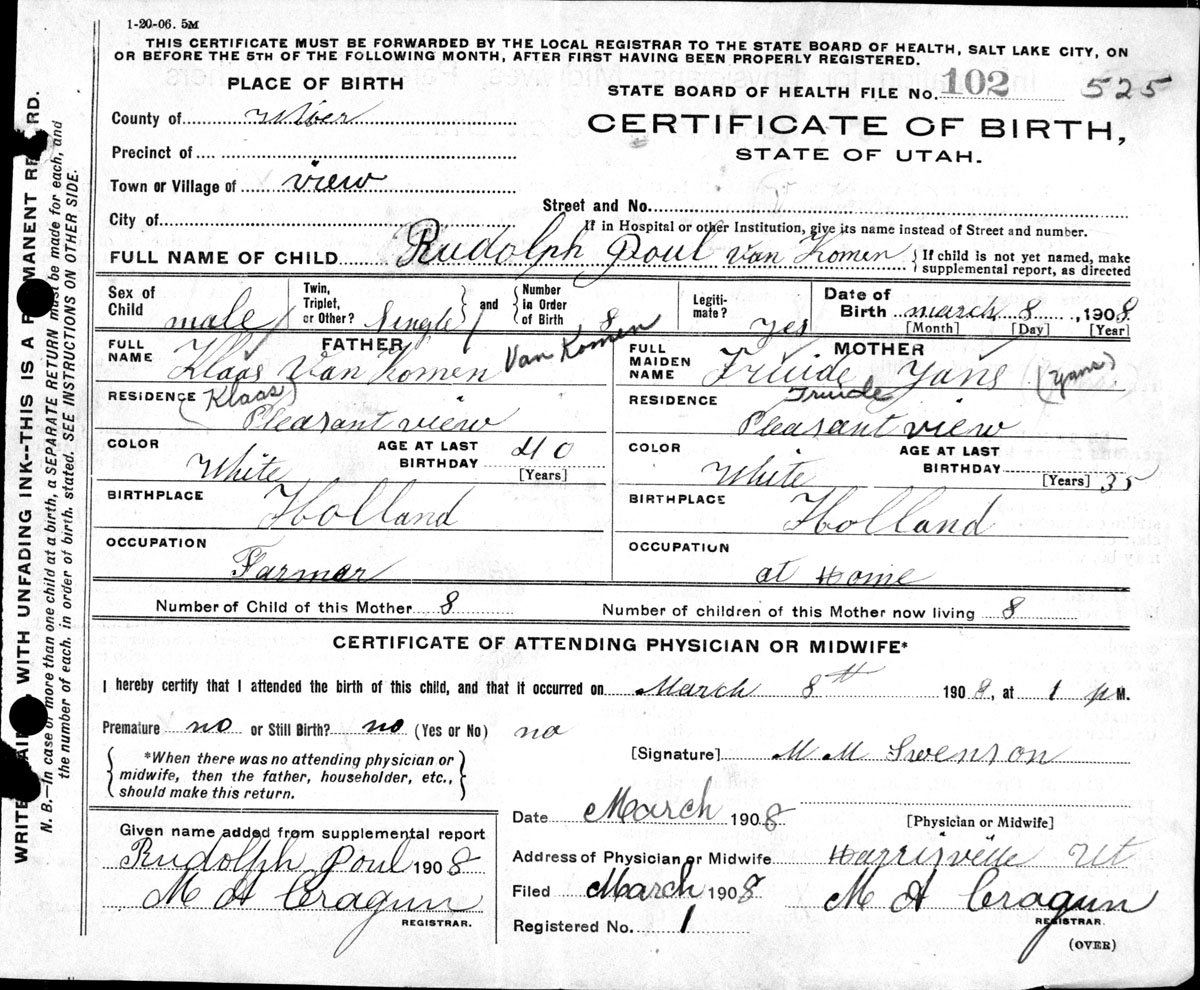 1-20-06. 5M
THIS CERTIFICATE MUST BE FORWARDED BY THE LOCAL REGISTRAR TO THE STATE BOARD OF HEALTH, SALT LAKE CITY, ON
OR BEFORE THE 5TH OF THE FOLLOWING MONTH, AFTER FIRST HAVING BEEN PROPERLY REGISTERED.
PLACE OF BIRTH
STATE BOARD OF HEALTH FILE No. 102 525
County of Wiber
CERTIFICATE OF BIRTH,
STATE OF UTAH.
Precinct of
Town or Village of view
Street and No.
City of
If in Hospital or other Institution, give its name instead of Street and number.
FULL NAME OF CHILD Rudolph Poul Van Komen { If child is not yet named, make
supplemental report, as directed
Sex of Child male
Twin, Triplet, or Other? Single
and { Number in Order of Birth 8
Legiti-mate? yes
Date of Birth march 8, 1908
[Month] [Day] [Year]
FATHER
FULL NAME Klaas Van Komen Van Komen
(Klaas)
RESIDENCE Pleasant view
COLOR White
AGE AT LAST BIRTHDAY 40
[Years]
BIRTHPLACE Holland
OCCUPATION Farmer
MOTHER
FULL MAIDEN NAME Truide Yans (Yans)
Truide
RESIDENCE Pleasant view
COLOR White
AGE AT LAST BIRTHDAY
[Years] 35
BIRTHPLACE Holland
OCCUPATION at Home
Number of Child of this Mother 8 Number of children of this Mother now living 8
CERTIFICATE OF ATTENDING PHYSICIAN OR MIDWIFE*
I hereby certify that I attended the birth of this child, and that it occurred on March 8th 1908, at 1 pM.
Premature no or Still Birth? no (Yes or No) no
*When there was no attending physician or
midwife, then the father, householder, etc.,
should make this return.
[Signature] M M Swenson
Date March 1908
[Physician or Midwife]
Given name added from supplemental report
Rudolph Poul 1908
M A Cragun
REGISTRAR.
Address of Physician or Midwife Harrisville Ut
Filed March 1908 M A Cragun
REGISTRAR.
Registered No. 1
(OVER)
WITH UNFADING INK--THIS IS A
N. B.—In case of more than one child at a birth, a SEPARATE RETURN must be made for each, and
the number of each, in order of birth, stated. SEE INSTRUCTIONS ON OTHER SIDE.